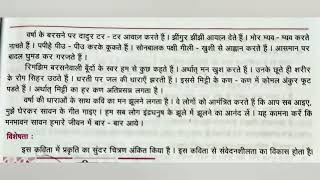 वर्षा के बरसने पर दादुर टर - टर आवाज करते हैं । झींगुर झींझीं आवाज देते हैं । मोर म्यव - म्यव करते
नाचते हैं । पपीहे पीउ - पीउ करके कूकते हैं । सोनबालक पक्षी गीली - खुशी से आह्वान करते हैं । आसमान पर
बादल घुमड कर गरजते हैं ।
रिमझिम बरसनेवाली बूँदों के स्वर हम से कुछ कहते हैं । अर्थात् मन खुश करते हैं । उनके छूते ही शरीर
के रोम सिहर उठते हैं । धरती पर जल की धाराएँ झरती हैं । इससे मिट्टी के कण - कण में कोमल अंकुर फूट
पडते हैं । अर्थात् मिट्टी का हर कण अतिप्रसन्न लगता है ।
वर्षा की धाराओं के साथ कवि का मन झूलने लगता है । वे लोगों को आमंत्रित करते हैं कि आप सब आइए,
मुझे घेरकर सावन के गीत गाइए । हम सब लोग इंद्रधनुष के झूले में झूलने का आनंद लें । यह कामना करें कि
मनभावन सावन हमारे जीवन में बार - बार आये ।
विशेषता :
इस कविता में प्रकृति का सुंदर चित्रण अंकित किया है । इस कविता से संवेदनशीलता का विकास होता है।